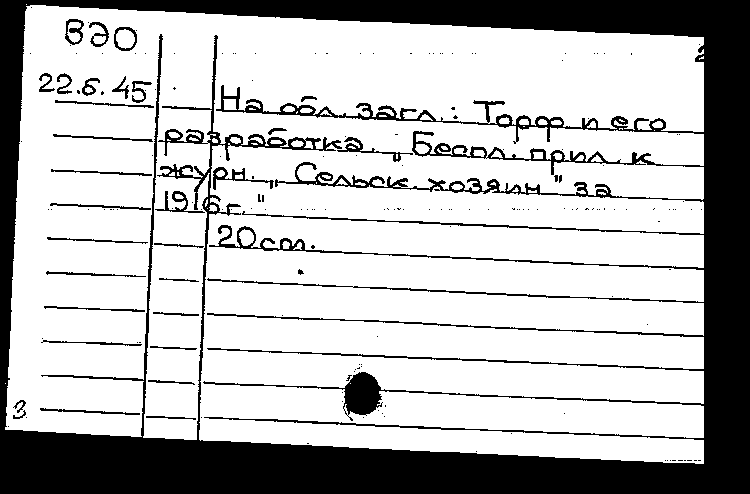 ВЭО
2
22.5.45
На обл. загл.: Торф и его
разработка. „Беспл. прил. к
журн. „Сельск. хозяин" за
1916г."
20см.
3